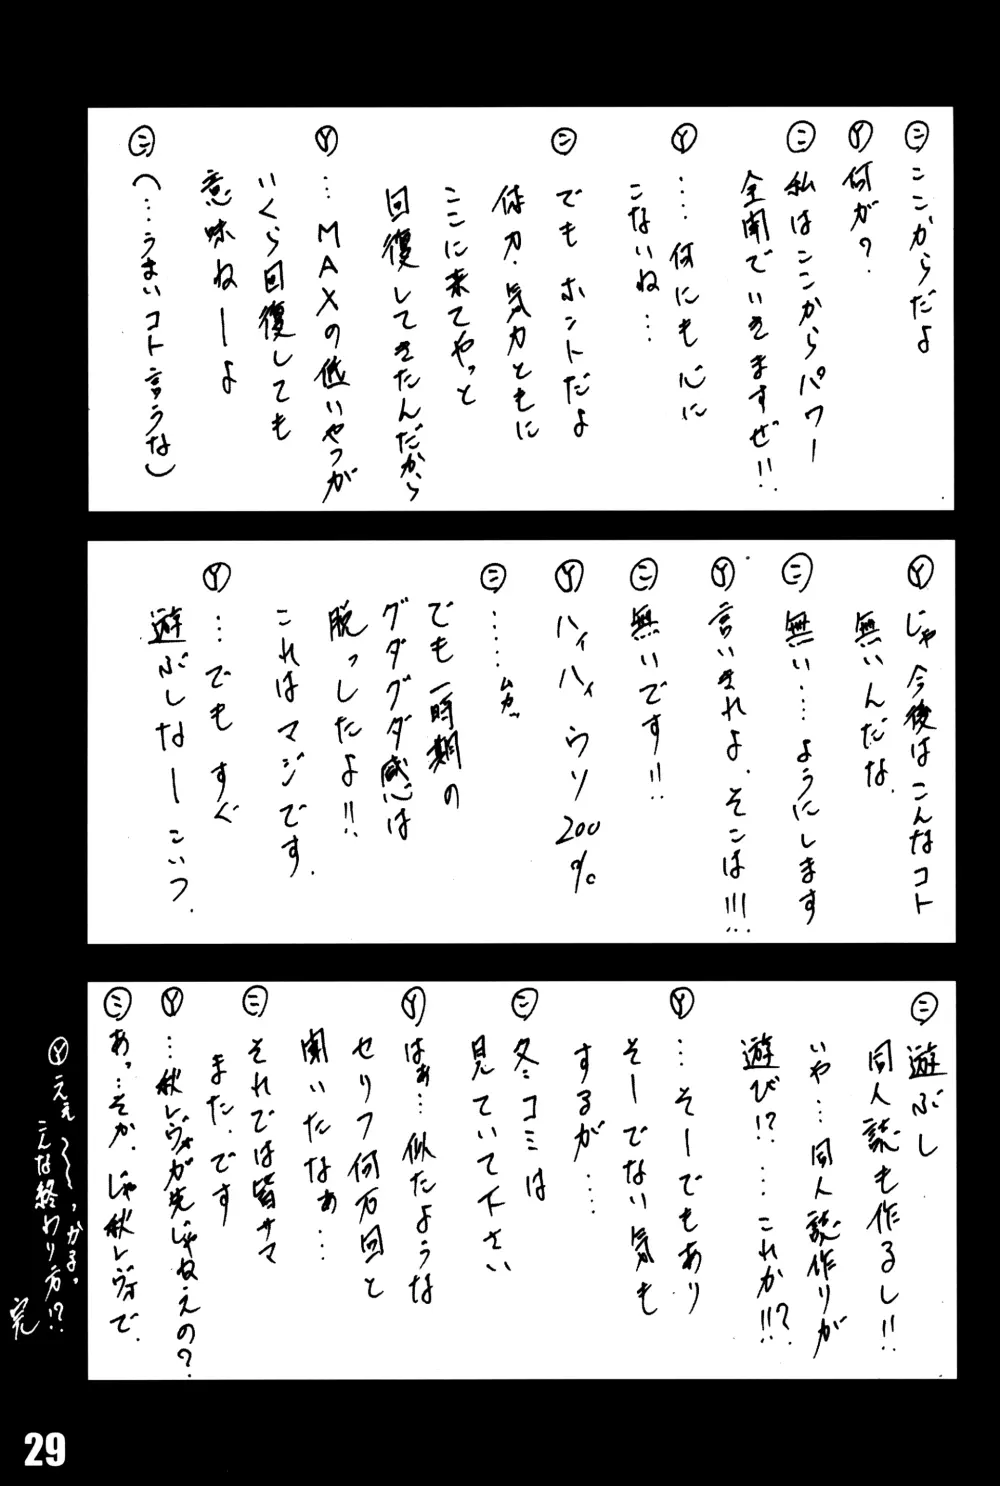 ㊁ここからだよ
Ⓨ何が?
㊁私はここからパワー
全開でいきますぜ!!
Ⓨ……何にも心に
こないね…
㊁でもホントだよ
体力・気力ともに
ここに来てやっと
回復してきたんだから
Ⓨ…MAXの低いやつが
いくら回復しても
意味ねーよ
㊁(…うまいコト言うな)
Ⓨじゃ今後はこんなコト
無いんだな.
㊁無い…ようにします
Ⓨ言いきれよ、そこは!!!
㊁無いです!!
Ⓨハイハイウソ200%
㊁……ムカッ
でも一時期の
グダグダ感は
脱っしたよ!!
これはマジです.
Ⓨ…でもすぐ
遊ぶしなーこいつ.
㊁遊ぶし
同人誌も作るし!!
いや…同人誌作りが
遊び!?…これか!!?
Ⓨ…そーでもあり
そーでない気も
するが……
㊁冬コミは
見ていて下さい
Ⓨはぁ…似たような
セリフ何万回と
聞いたなぁ…
㊁それでは皆サマ
また、です
Ⓨ…秋レヴォが先じゃねえの?
㊁あっ…そか、じゃ秋レヴォで.
Ⓨええ〜〜っかるっ
こんな終わり方!?
完
29